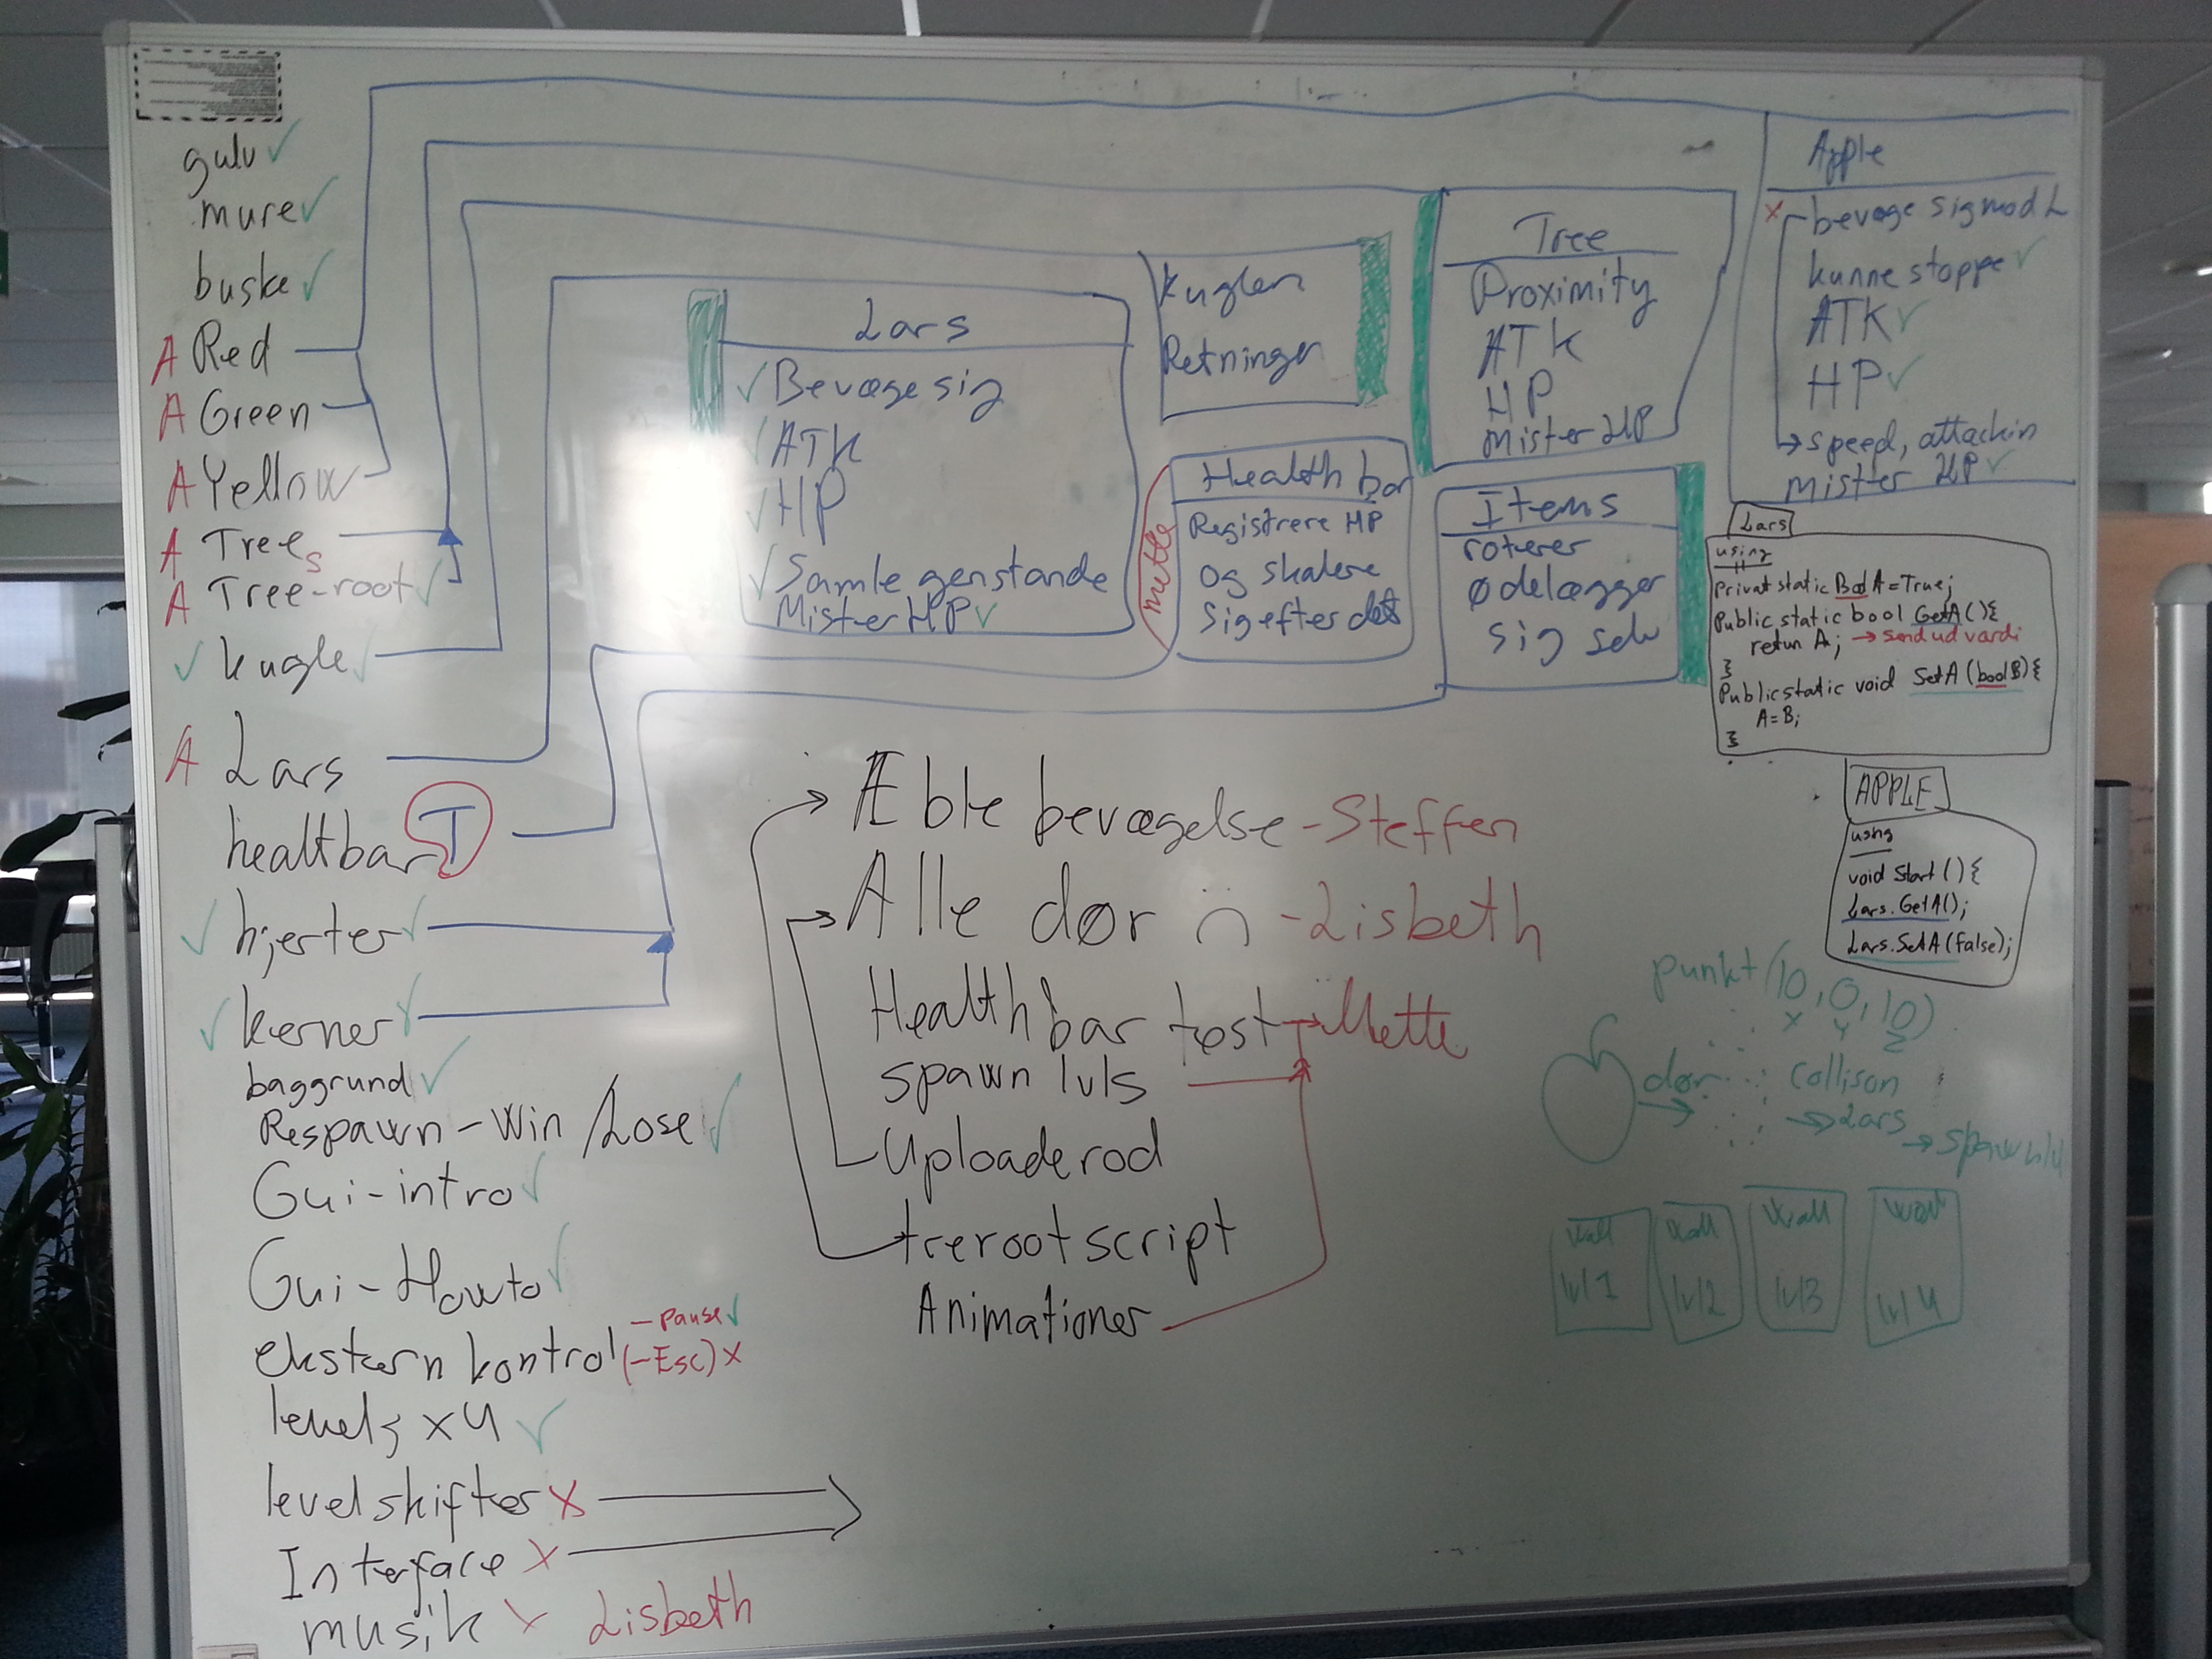 gulv ✓
mure ✓
buske ✓
A Red
A Green
A Yellow
A Trees
A Tree-root ✓
✓ kugle ✓
A Lars
healtbar T
✓ hjerter ✓
✓ kerner ✓
baggrund ✓
Respawn - Win / Lose ✓
Gui - intro ✓
Gui - Howto ✓
- Pause ✓
ekstern kontrol (- Esc) X
levels x 4 ✓
levelskifter X
Interface X
musik X Lisbeth
Lars
✓ Bevæge sig
✓ ATK
✓ HP
✓ Samle genstande
Mister HP ✓
Kuglen
Retninger
mette
Health bar
Registrere HP
og skalere
sig efter det
Tree
Proximity
ATK
HP
Mister HP
Items
roterer
ødelægger
sig selv
Apple
X bevæge sig mod L
kunne stoppe ✓
ATK ✓
HP ✓
→ speed, attackin
Mister HP ✓
Lars
using
Privat static Bool A = True;
Public static bool GetA () {
retun A; → send ud værdi
}
Public static void SetA (bool B) {
A = B;
}
APPLE
using
void Start () {
Lars.GetA();
Lars.SetA (false);
Æble bevægelse - Steffen
Alle dør - Lisbeth
Health bar test → Mette
spawn lvls
Uploade rod
treroot script
Animationer
punkt (10, 0, 10)
x y z
dør
→
collison
→ Lars
→ spawn lvl
Wall
lvl 1
Wall
lvl 2
Wall
lvl 3
Wall
lvl 4